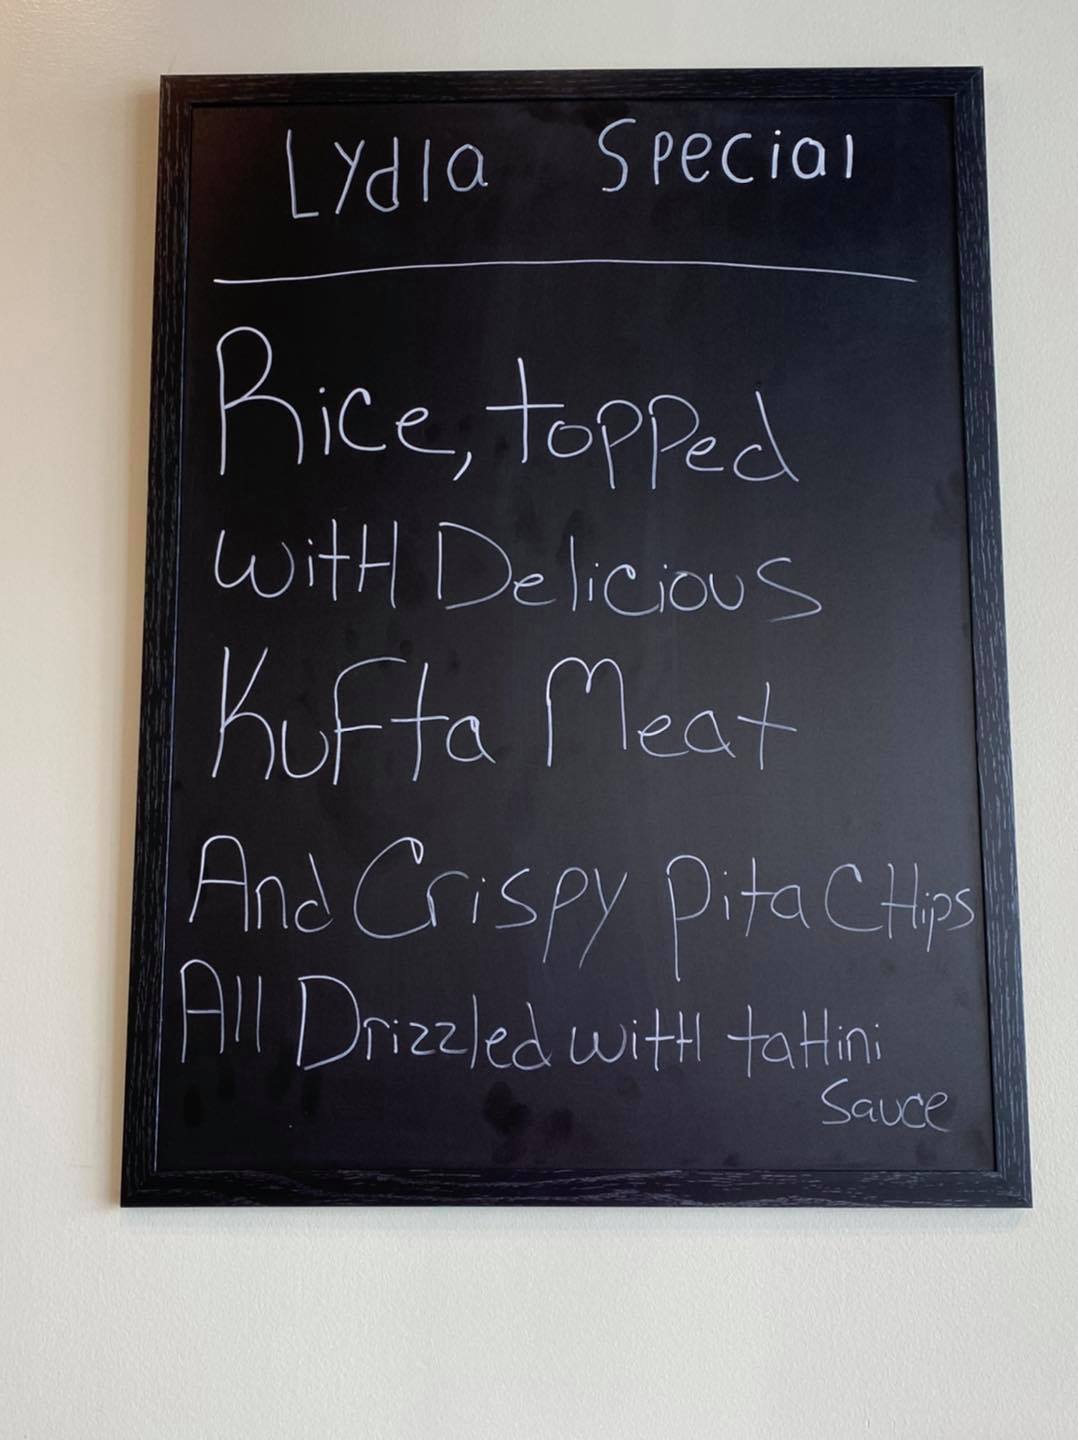 Lydia Special
Rice, topped
witH Delicious
Kufta Meat
And Crispy pita CHips
All Drizzled witH taHini
Sauce